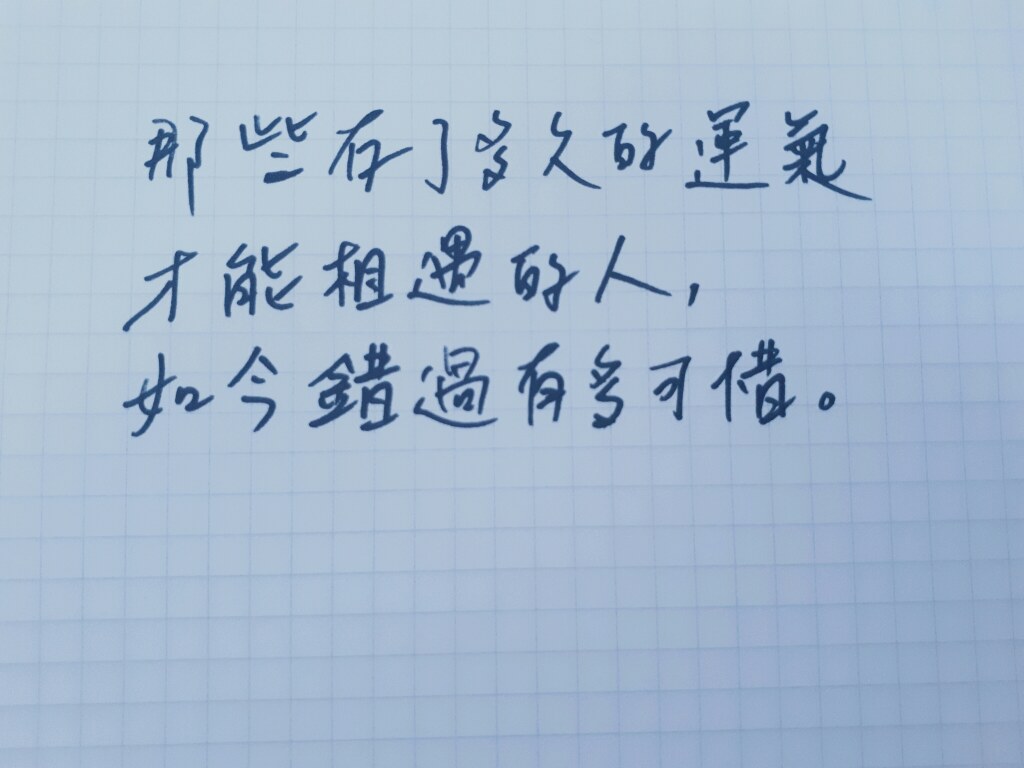 那些存了多久的運氣
才能相遇的人,
如今錯過有多可惜。